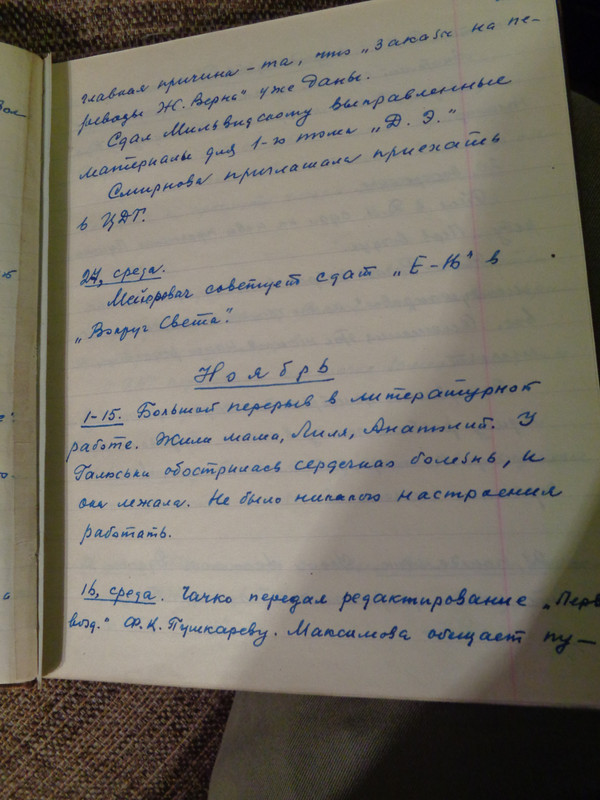 главная причина – та, что „Заказы на пе-
реводы Ж. Верна“ уже даны.
Сдал Мильвидскому выправленные
материалы для 1-го тома „Д. Э.“
Смирнова приглашала приехать
в ЦДТ.
24, среда.
советует сдать „Е-16“ в
„Вокруг Света“.
Ноябрь
1-15. Большой перерыв в литературной
работе. Жили мама, Лиля, Анатолий. У
Галюськи обострилась сердечная болезнь, и
она лежала. Не было никакого настроения
работать.
16, среда. Чачко передал редактирование „Перв
возд.“ Ф.К. Пушкареву. Максимова обещает пу-